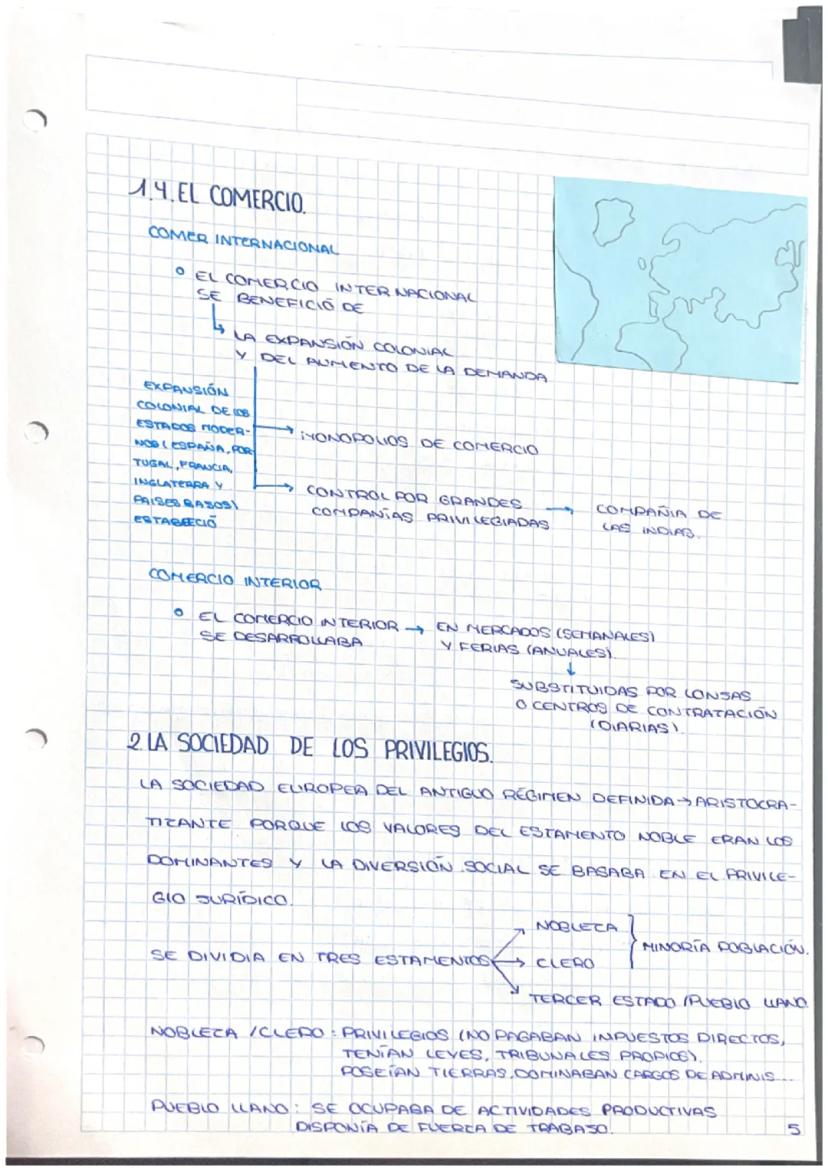 1.4. EL COMERCIO.
COMER INTERNACIONAL
EL COMERCIO INTERNACIONAL
SE BENEFICIÓ DE
LA EXPANSIÓN COLONIAL
Y DEL AUMENTO DE LA DEMANDA
EXPANSIÓN
COLONIAL DE LOS
ESTADOS MODER-
NOS (ESPAÑA, POR
TUGAL, FRANCIA,
INGLATERRA Y
PAISES BAJOS)
ESTABLECIÓ
→ MONOPOLIOS DE COMERCIO
→ CONTROL POR GRANDES → COMPAÑIA DE
COMPAÑÍAS PRIVILEGIADAS LAS INDIAS.
COMERCIO INTERIOR
EL COMERCIO INTERIOR → EN MERCADOS (SEMANALES)
SE DESARROLLABA Y FERIAS (ANUALES).
SUBSTITUIDAS POR LONJAS
O CENTROS DE CONTRATACIÓN
(DIARIAS).
2. LA SOCIEDAD DE LOS PRIVILEGIOS.
LA SOCIEDAD EUROPEA DEL ANTIGUO RÉGIMEN DEFINIDA → ARISTOCRA-
TIZANTE PORQUE LOS VALORES DEL ESTAMENTO NOBLE ERAN LOS
DOMINANTES Y LA DIVERSIÓN SOCIAL SE BASABA EN EL PRIVILE-
GIO JURÍDICO.
→ NOBLEZA
SE DIVIDIA EN TRES ESTAMENTOS → CLERO } MINORÍA POBLACIÓN.
→ TERCER ESTADO /PUEBLO LLANO
NOBLEZA /CLERO: PRIVILEGIOS (NO PAGABAN IMPUESTOS DIRECTOS,
TENÍAN LEYES, TRIBUNALES PROPIOS).
POSEÍAN TIERRAS, DOMINABAN CARGOS DE ADMINIS...
PUEBLO LLANO: SE OCUPABA DE ACTIVIDADES PRODUCTIVAS
DISPONÍA DE FUERZA DE TRABAJO.
5